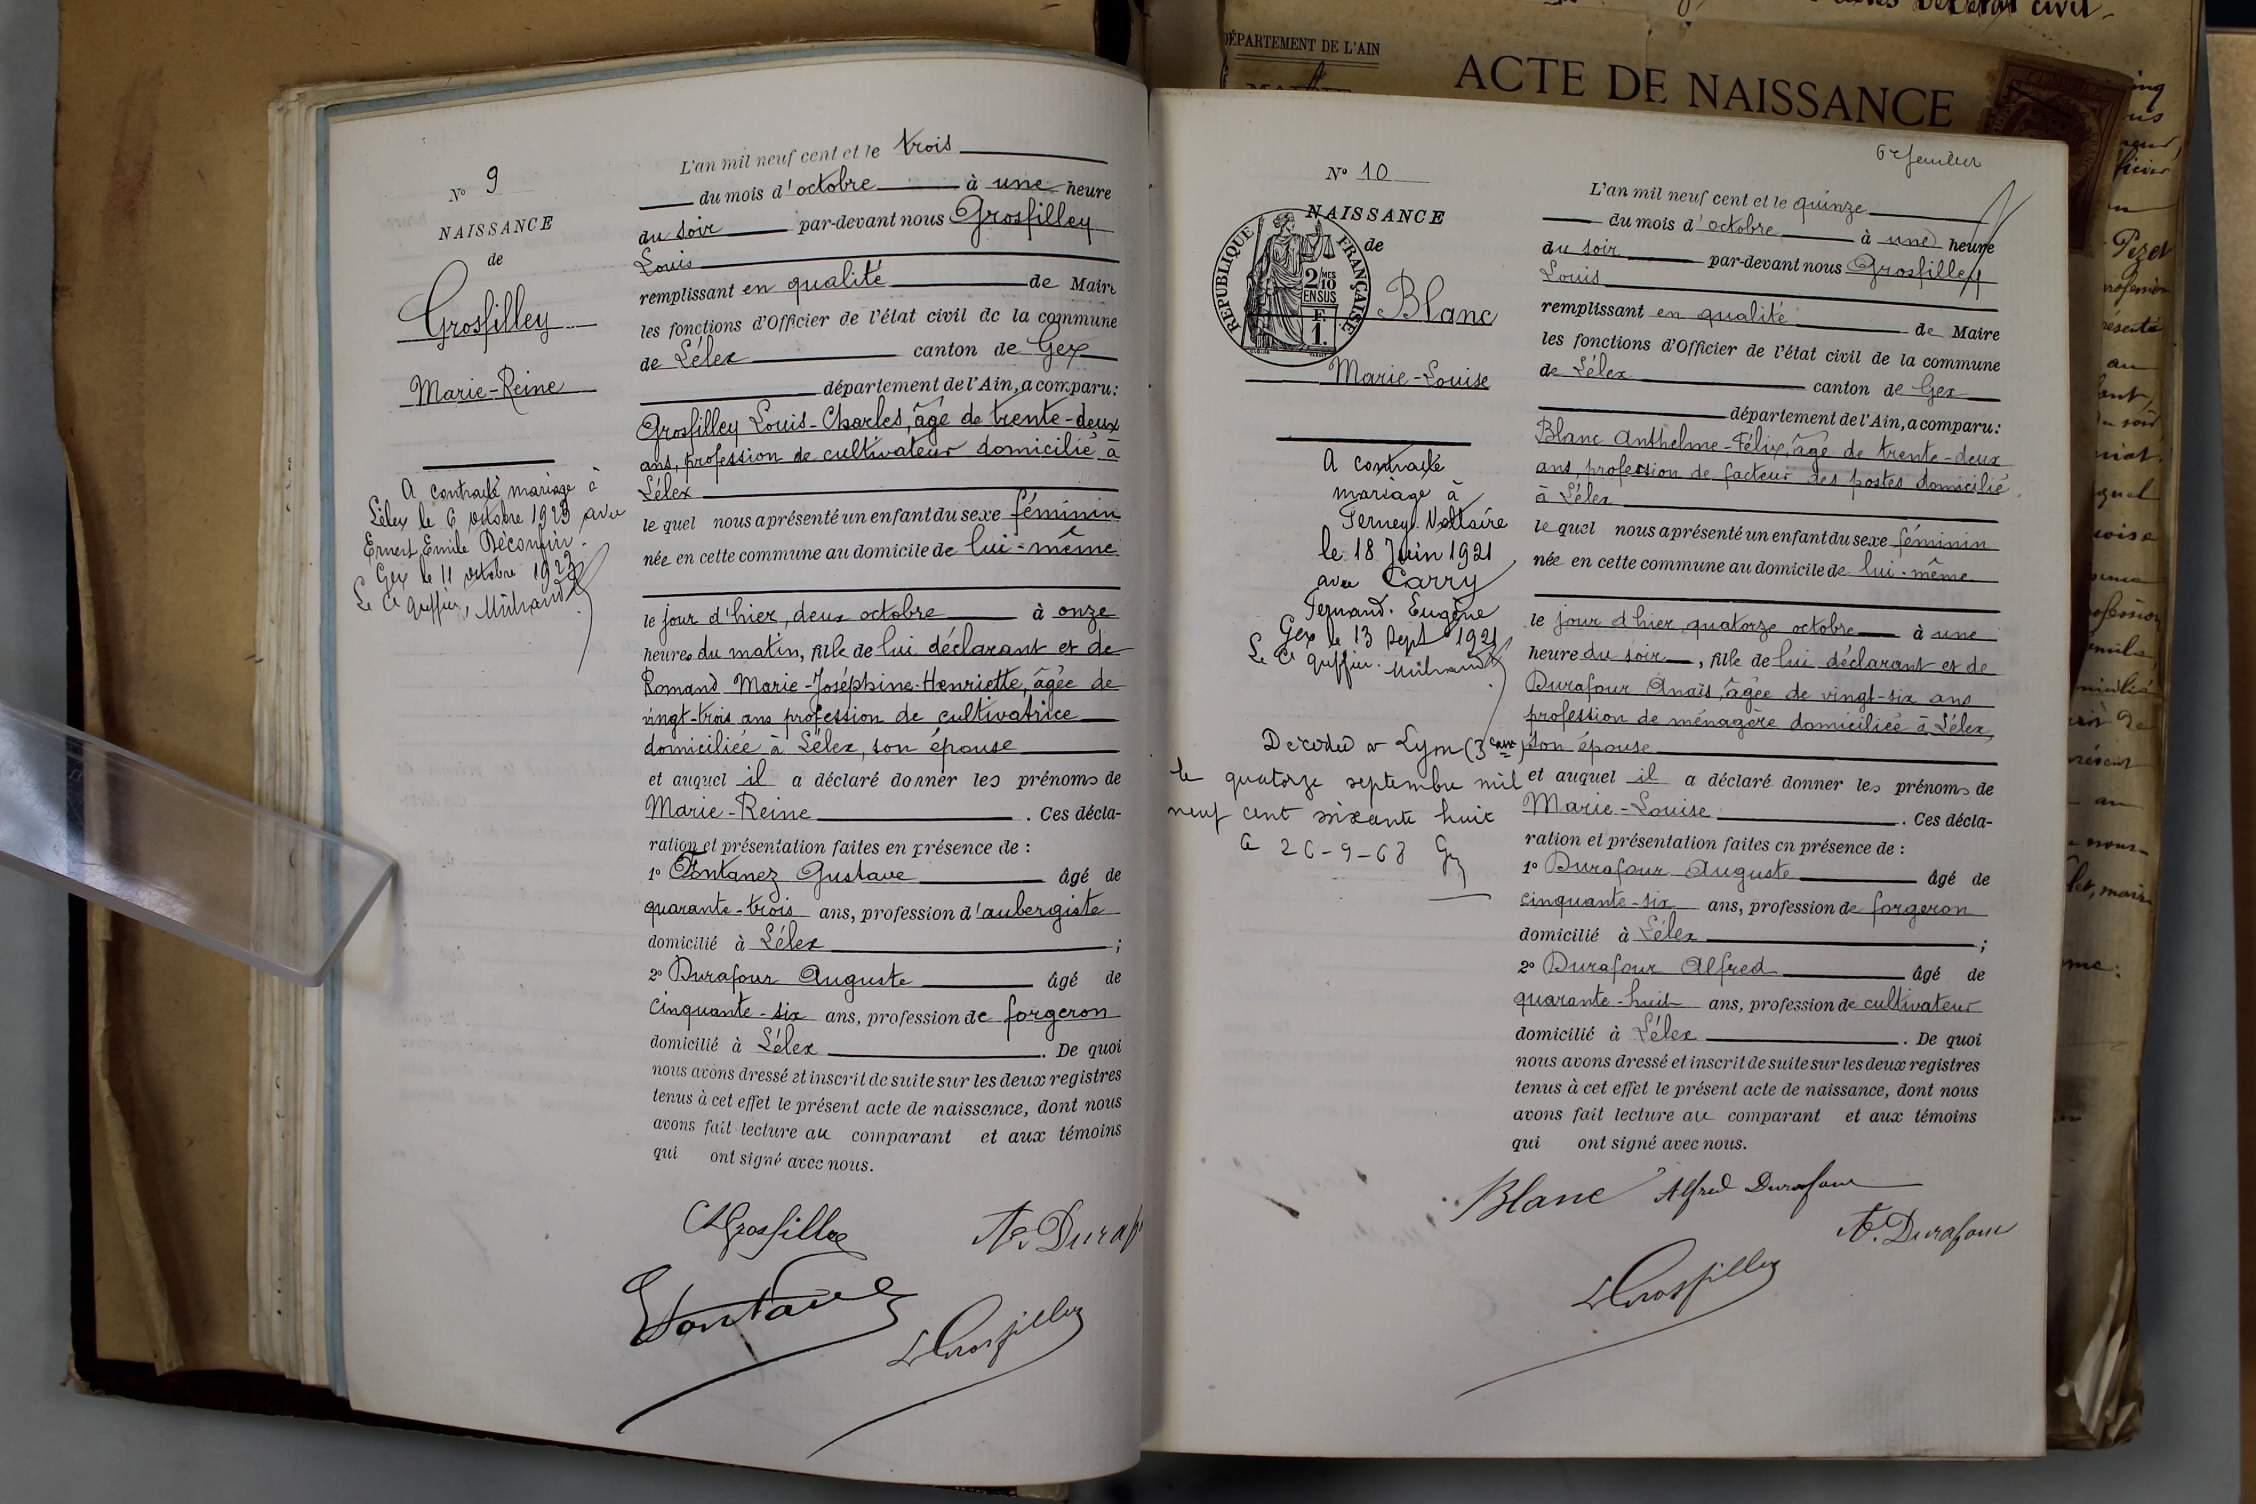 N° 9
NAISSANCE
de
Grosfilley
Marie-Reine
A contracté mariage à
Lélex le 6 octobre 1923 avec
Ernest Emile
Gex le 11 octobre 1923
Le Cis greffier,
L'an mil neuf cent et le trois
du mois d'octobre à une heure
du soir par-devant nous Grosfilley
Louis
remplissant en qualité de Maire
les fonctions d'Officier de l'état civil de la commune
de Lélex canton de Gex
département de l'Ain, a comparu:
Grosfilley Louis-Charles, âgé de trente-deux
ans, profession de cultivateur domicilié à
Lélex
le quel nous a présenté un enfant du sexe féminin
née en cette commune au domicile de lui-même
le jour d'hier, deux octobre à onze
heures du matin, fille de lui déclarant et de
Romand Marie-Joséphine-Henriette, âgée de
vingt-trois ans profession de cultivatrice
domiciliée à Lélex, son épouse
et auquel il a déclaré donner les prénoms de
Marie-Reine. Ces décla-
ration et présentation faites en présence de :
1° Fontanez Gustave âgé de
quarante-trois ans, profession d'aubergiste
domicilié à Lélex ;
2° Durafour Auguste âgé de
cinquante-six ans, profession de forgeron
domicilié à Lélex. De quoi
nous avons dressé et inscrit de suite sur les deux registres
tenus à cet effet le présent acte de naissance, dont nous
avons fait lecture au comparant et aux témoins
qui ont signé avec nous.
Ch Grosfilley
Ate Duraf
Fontanez
L Grosfilley
DÉPARTEMENT DE L'AIN
ACTE DE NAISSANCE
N° 10
NAISSANCE
de
RÉPUBLIQUE FRANÇAISE
2/10 MES
EN SUS
1 F.
Blanc
Marie-Louise
A contracté
mariage à
Ferney-Voltaire
le 18 Juin 1921
avec Carry
Fernand-Eugène
Gex le 13 Sept 1921
Le Cis greffier.
Décédée à Lyon (3
le quatorze septembre mil
neuf cent soixante huit
Le 26-9-68
L'an mil neuf cent et le quinze
du mois d'octobre à une heure
du soir par-devant nous Grosfilley
Louis
remplissant en qualité de Maire
les fonctions d'Officier de l'état civil de la commune
de Lélex canton de Gex
département de l'Ain, a comparu:
Blanc Anthelme-Félix, âgé de trente-deux
ans, profession de facteur des postes domicilié
à Lélex
le quel nous a présenté un enfant du sexe féminin
née en cette commune au domicile de lui-même
le jour d'hier, quatorze octobre à une
heure du soir, fille de lui déclarant et de
Durafour Anaïs, âgée de vingt-six ans
profession de ménagère domiciliée à Lélex,
son épouse
et auquel il a déclaré donner les prénoms de
Marie-Louise. Ces décla-
ration et présentation faites en présence de :
1° Durafour Auguste âgé de
cinquante-six ans, profession de forgeron
domicilié à Lélex ;
2° Durafour Alfred âgé de
quarante-huit ans, profession de cultivateur
domicilié à Lélex. De quoi
nous avons dressé et inscrit de suite sur les deux registres
tenus à cet effet le présent acte de naissance, dont nous
avons fait lecture au comparant et aux témoins
qui ont signé avec nous.
Blanc Alfred Durafour
Ate. Durafour
L Grosfilley